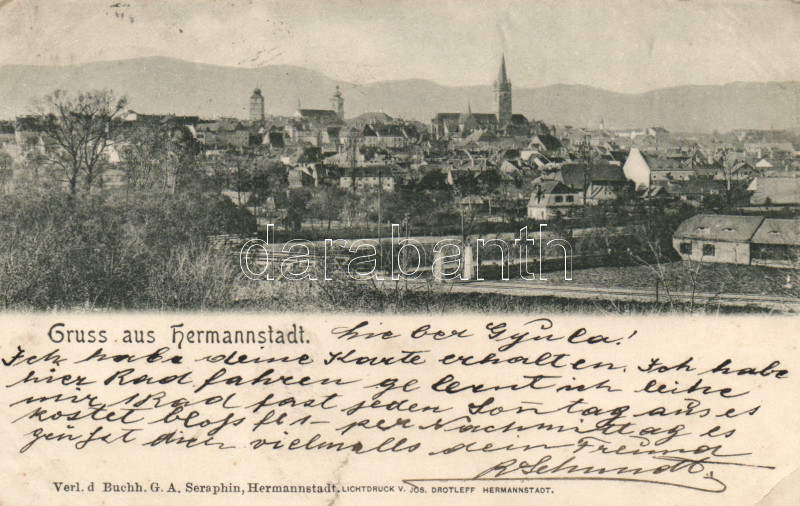 darabanth
Gruss aus Hermannstadt. Gyula!
Ich habe deine Karte erhalten. Ich habe
hier Rad fahren gelernt ich leihe
mir 1 Rad fast jeden Sontag aus es
kostet blos fl - per Nachmittag es
grüsst dich vielmalls dein Freund
R Schmidt
Verl. d Buchh. G. A. Seraphin, Hermannstadt. LICHTDRUCK V. JOS. DROTLEFF HERMANNSTADT.